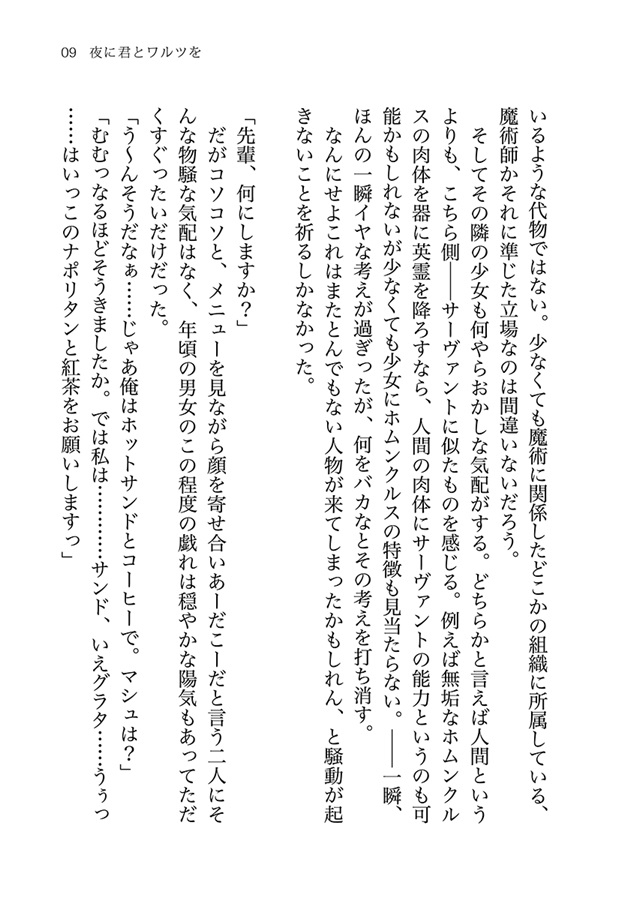 09 夜に君とワルツを
いるような代物ではない。少なくても魔術に関係したどこかの組織に所属している、
魔術師かそれに準じた立場なのは間違いないだろう。
そしてその隣の少女も何やらおかしな気配がする。どちらかと言えば人間という
よりも、こちら側――サーヴァントに似たものを感じる。例えば無垢なホムンクル
スの肉体を器に英霊を降ろすなら、人間の肉体にサーヴァントの能力というのも可
能かもしれないが少なくても少女にホムンクルスの特徴も見当たらない。――一瞬、
ほんの一瞬イヤな考えが過ぎったが、何をバカなとその考えを打ち消す。
なんにせよこれはまたとんでもない人物が来てしまったかもしれん、と騒動が起
きないことを祈るしかなかった。
「先輩、何にしますか？」
だがコソコソと、メニューを見ながら顔を寄せ合いあーだこーだと言う二人にそ
んな物騒な気配はなく、年頃の男女のこの程度の戯れは穏やかな陽気もあってただ
くすぐったいだけだった。
「う〜んそうだなぁ……じゃあ俺はホットサンドとコーヒーで。マシュは？」
「むむっなるほどそうきましたか。では私は…………サンド、いえグラタ……うぅっ
……はいっこのナポリタンと紅茶をお願いしますっ」